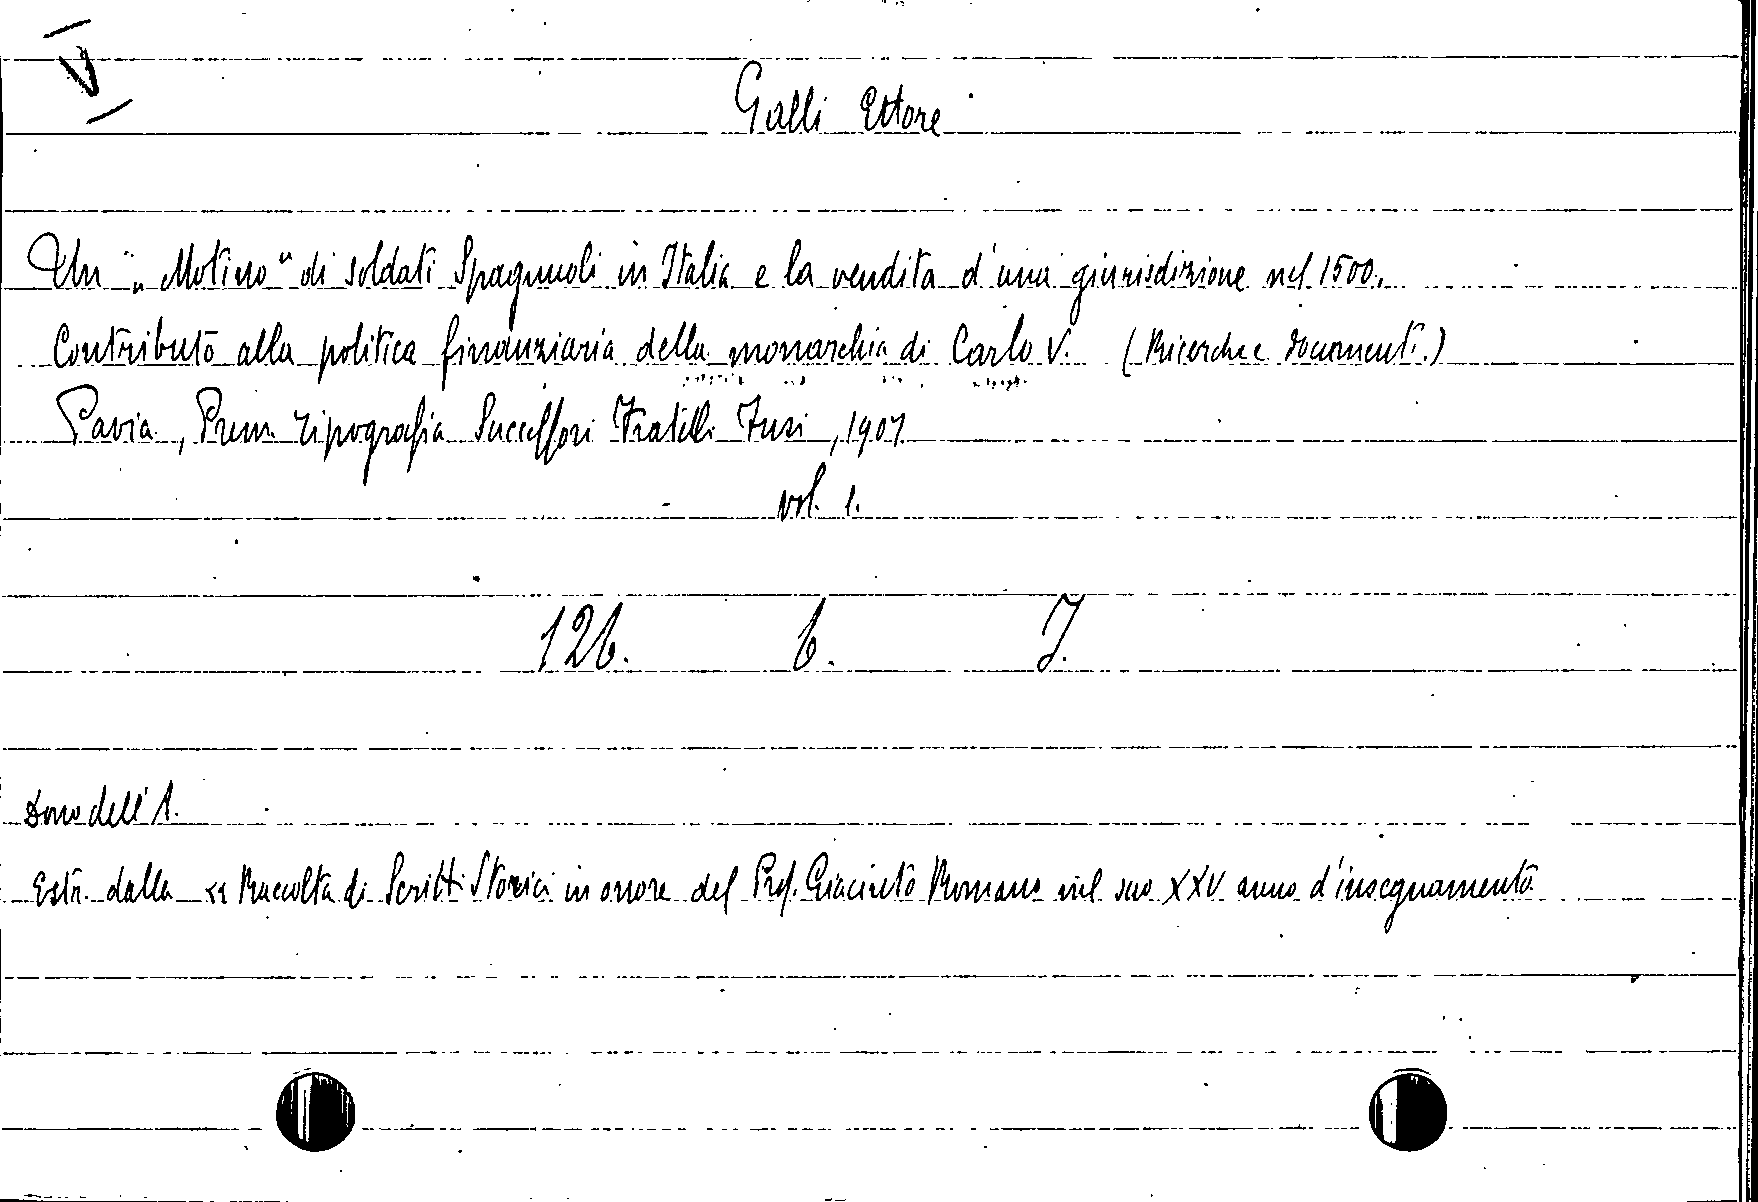 V
Galli Ettore
Un „Motino" di soldati Spagnuoli in Italia e la vendita d'una giurisdizione nel 1500.
Contributo alla politica finanziaria della monarchia di Carlo V. (Ricerche e documenti.)
Pavia, Prem. Tipografia Successori Fratelli Fusi, 1907
vol. 1.
126. 6. J.
Dono dell'A.
Estr. dalla « Raccolta di Scritti Storici in onore del Prof. Giacinto Romano nel suo XXV anno d'insegnamento